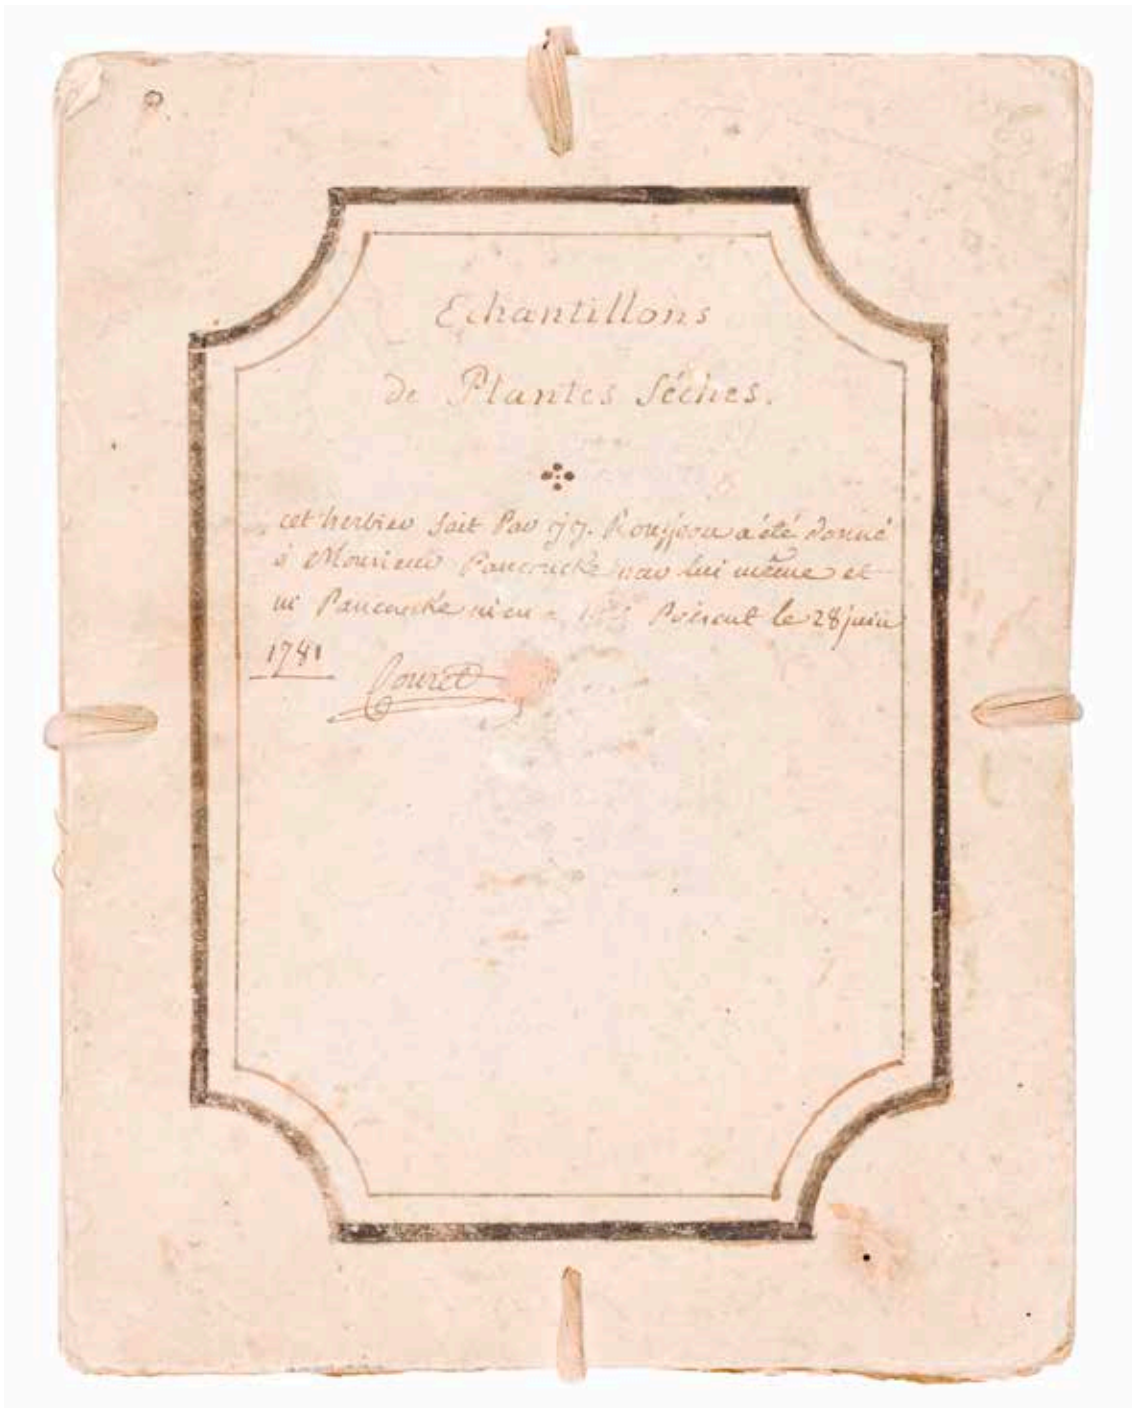 Echantillons
de Plantes Séches.
cet herbier fait Par JJ. Rousseau a été donné
à Monsieur Pancoucke par lui même et
Mr Pancoucke m'en a fait Présent le 28 juin
1781
Couret